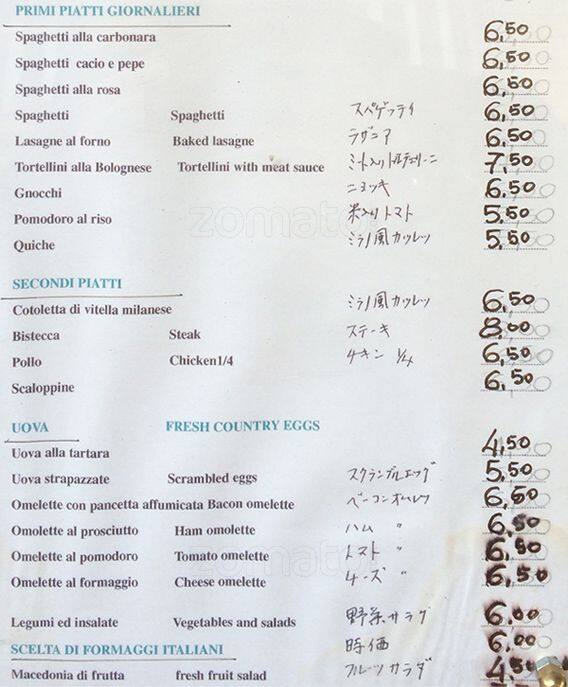 PRIMI PIATTI GIORNALIERI
Spaghetti alla carbonara 6,50
Spaghetti cacio e pepe 6,50
Spaghetti alla rosa 6,50
Spaghetti Spaghetti スパゲッティ 6,50
Lasagne al forno Baked lasagne ラザニア 6,50
Tortellini alla Bolognese Tortellini with meat sauce 7,50
Gnocchi ニョッキ 6,50
Pomodoro al riso 米入りトマト 5,50
Quiche ミラノ風カツレツ 5,50
SECONDI PIATTI
Cotoletta di vitella milanese ミラノ風カツレツ 6,50
Bistecca Steak ステーキ 8,00
Pollo Chicken1/4 チキン 1/4 6,50
Scaloppine 6,50
UOVA FRESH COUNTRY EGGS
Uova alla tartara 4,50
Uova strapazzate Scrambled eggs スクランブルエッグ 5,50
Omelette con pancetta affumicata Bacon omelette ベーコンオムレツ 6,50
Omolette al prosciutto Ham omolette ハム " 6,50
Omelette al pomodoro Tomato omelette トマト " 6,50
Omelette al formaggio Cheese omelette チーズ " 6,50
Legumi ed insalate Vegetables and salads 野菜サラダ 6,00
時価 6,00
SCELTA DI FORMAGGI ITALIANI
Macedonia di frutta fresh fruit salad フルーツサラダ 4,50
zomato
zomato